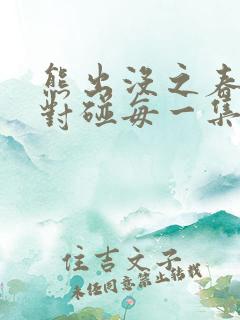 熊出没之春
對碰每一集
住吉文子
未经同意禁止转载